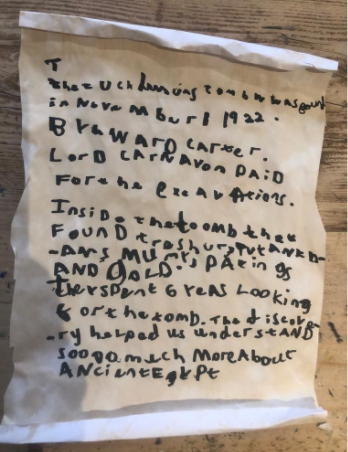 T
the tuchamuns tomb was found
in Novembur 1 1922.
By haward carter.
Lord carnavon paid
For the excavations.
Inside the toomb they
Found treshurs, tutankh-
-ams mumy, paings
AND GOLD.
they spent 6 yeas Looking
for the tomb. The discove-
-ry helped us understAND
soooo much more About
Ancient Egypt